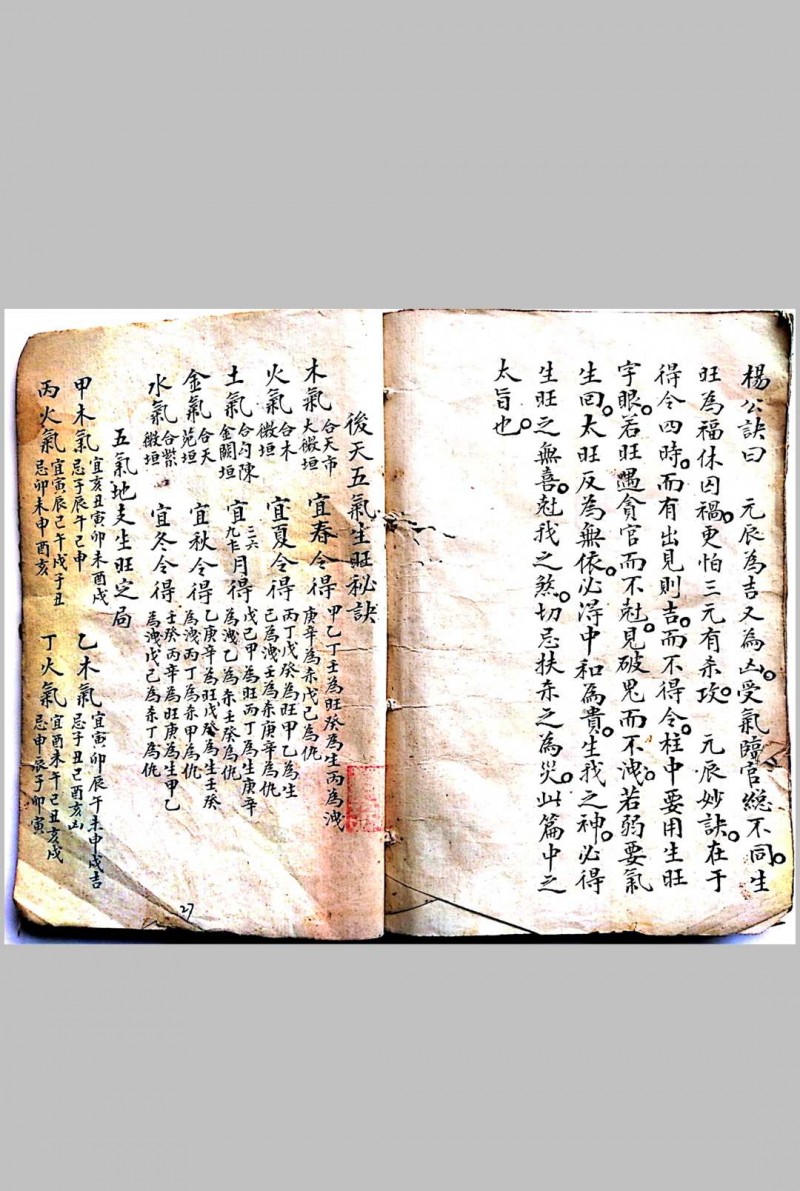 楊公訣曰　元辰為吉又為凶。受氣臨官總不同。生
旺為福休囚禍。更怕三元有杀攻。　元辰妙訣。在于
得令四時。而有出見則吉。而不得令。柱中要用生旺
字眼。若旺遇貪官而不尅。見破鬼而不洩。若弱要氣
生囙。太旺反為無依。必得中和為貴。生我之神。必得
生旺之無喜。尅我之煞。切忌扶杀之為災。此篇中之
太旨也。
後天五氣生旺秘訣
木氣 合天市太微垣 宜春令得 甲乙丁壬為旺癸為生丙為洩
庚辛為杀戊己為仇
火氣 合木微垣 宜夏令得 丙丁戊癸為旺甲乙為生
己為洩壬為杀庚辛為仇
土氣 合勾陳金闕垣 宜三六九十二月得 戊己甲為旺丙丁為生庚辛
為洩乙為杀壬癸為仇
金氣 合天苑垣 宜秋令得 乙庚辛為旺戊癸為生壬癸
為洩丙丁為杀甲為仇
水氣 合紫微垣 宜冬令得 壬癸丙辛為旺庚為生甲乙
為洩戊己為杀丁為仇
五氣地支生旺定局
甲木氣 宜亥丑寅卯未酉戌
忌子辰午己申
乙木氣 宜寅卯辰午未申戌吉
忌子丑己酉亥凶
丙火氣 宜寅辰己午戌子丑
忌卯未申酉亥
丁火氣 宜酉未午己丑亥戌
忌申辰子卯寅
27